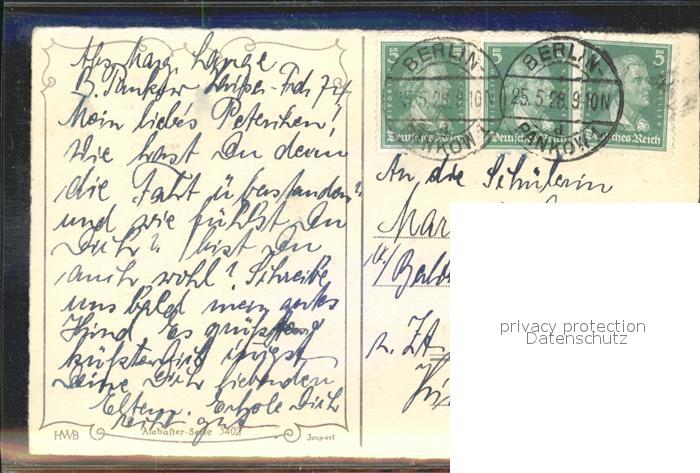 Abs. Marg. Lange
B. Pankow
Mein liebes Peterchen!
Wie hast Du denn
die Fahrt überstanden?
und wie fühlst Du
Dich? bist Du
auch wohl? Schreibe
uns bald mein gutes
Kind. Es grüßt
küßt Dich innigst
Deine Dich liebenden
Eltern. Erhole Dich
recht gut
HWB Alabaster-Serie 3402 Import
BERLIN- BERLIN-
25.5.28.9-10N
PANKOW 1 PANKOW 1
5 5
Deutsches Reich Deutsches Reich Deutsches Reich
An die Schülerin
Mar
z. Zt.
privacy protection
Datenschutz